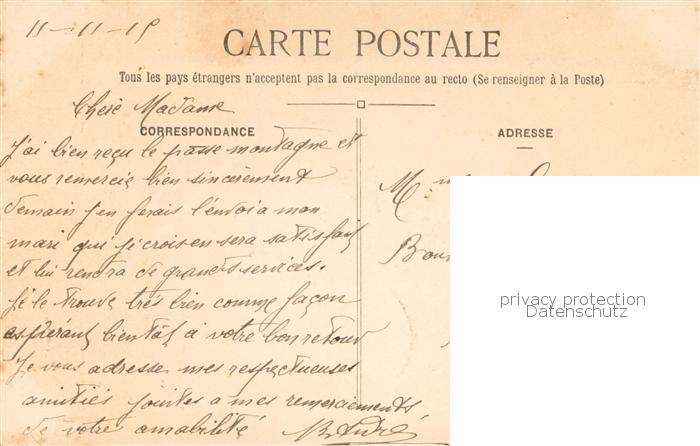 11-11-15
CARTE POSTALE
Tous les pays étrangers n'acceptent pas la correspondance au recto (Se renseigner à la Poste)
Chere Madame
CORRESPONDANCE
J'ai bien reçu le passe montagne et
vous remercie bien sincerement
demain j'en ferais l'envoi a mon
mari qui je crois en sera satisfait
et lui rendra de grands services.
Je le trouve très bien comme façon
esperant bientôt à votre bon retour
Je vous adresse mes respectueuses
amitiés jointes a mes remerciements
de votre amabilité
ADRESSE
M
privacy protection
Datenschutz